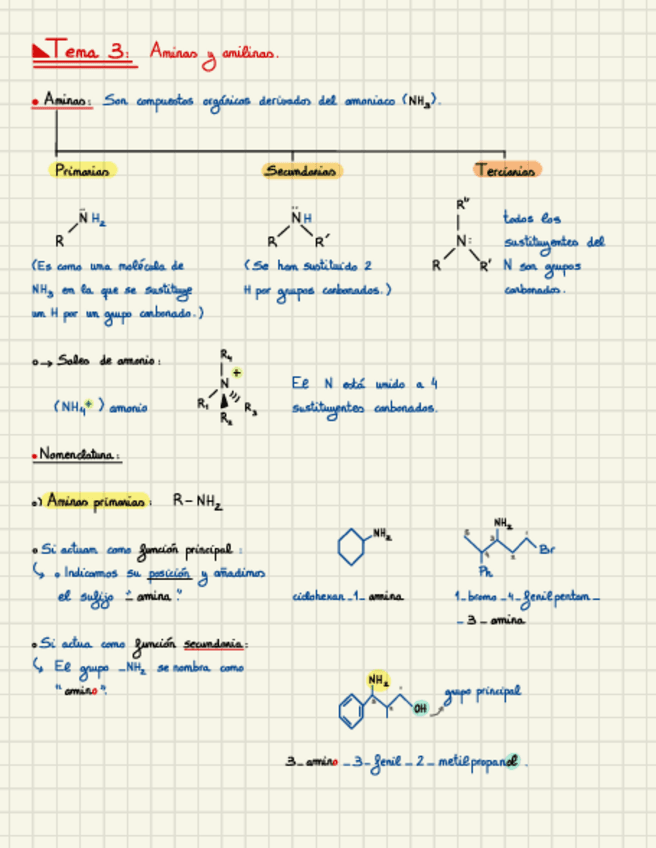 Tema 3: Aminas y anilinas.
• Aminas: Son compuestos orgánicos derivados del amoniaco (NH3).
Primarias
Secundarias
Terciarias
NH2
R
(Es como una molécula de
NH3 en la que se sustituye
un H por un grupo carbonado.)
NH
R R'
(Se han sustituido 2
H por grupos carbonados.)
R"
N:
R R'
todos los
sustituyentes del
N son grupos
carbonados.
o→ Sales de amonio:
(NH4+) amonio
R4
+
N
R1 R2 R3
El N está unido a 4
sustituyentes carbonados.
• Nomenclatura:
•) Aminas primarias: R-NH2
• Si actuan como función principal:
↳ • Indicamos su posición y añadimos
el sufijo "-amina".
NH2
ciclohexan-1-amina
NH2
5 4 3 2 1
Br
Ph
1-bromo-4-fenilpentan-
-3-amina
• Si actua como función secundaria:
↳ El grupo -NH2 se nombra como
"amino".
NH2
3 2 1
OH
grupo principal
3-amino-3-fenil-2-metilpropanol.